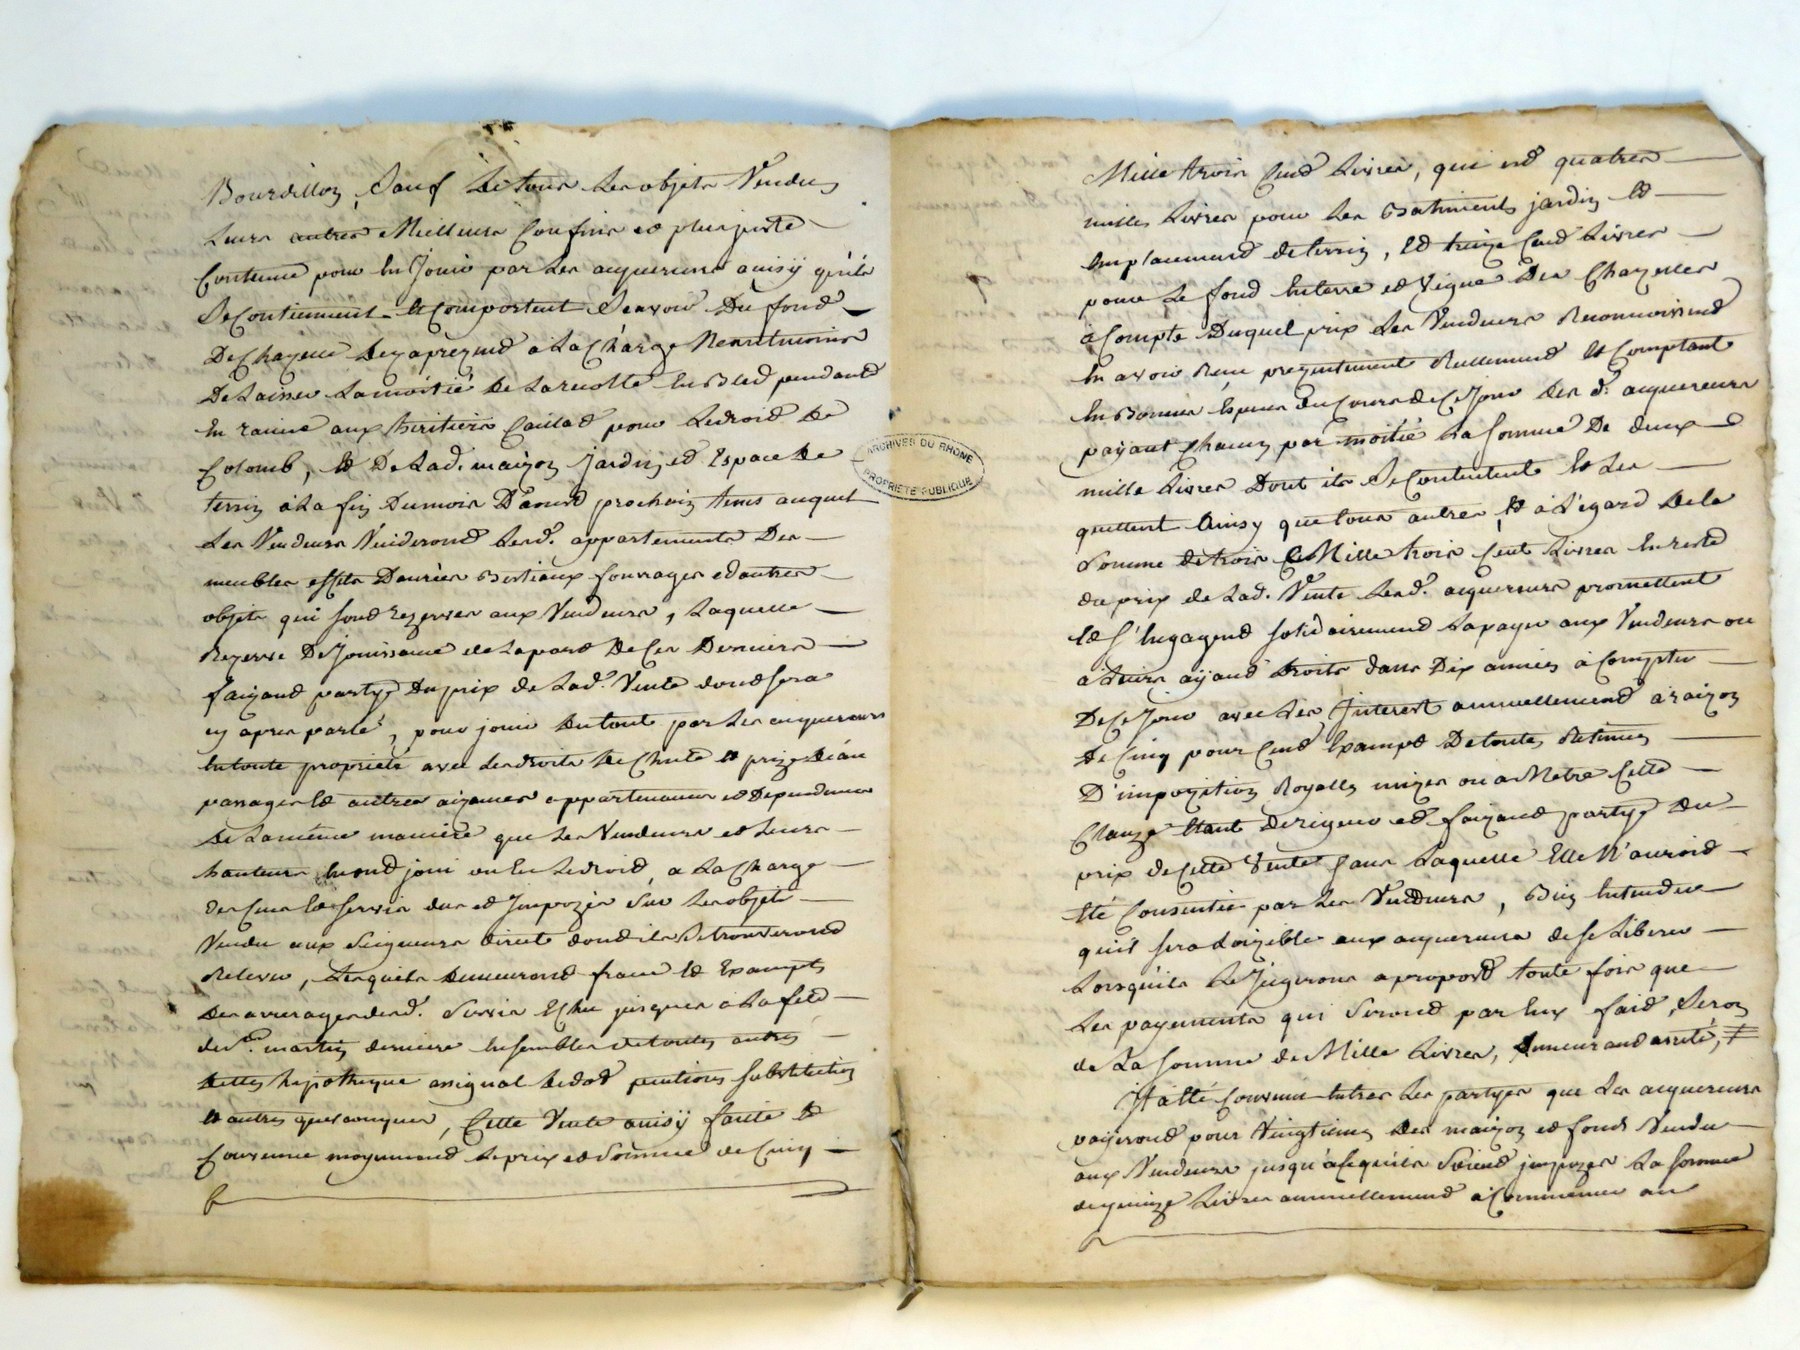 Bourdillon, Sauf de tous les objets Vendus
Leurs autres Meilleurs Confins et plus juste
Contenue pour en Jouir par les acquereurs ainsÿ qu'ils
Se Contiennent et Comportent Scavoir Du fond
De Chayelle Dez aprezend a la Charge Neantmoins
De Laisser La moitié De La recolte en Bled pendante
En racine aux heritiers Caillat pour Le droit de
Colomb, et De Lad. maizon jardin et Espace de
terrin a La fin Du mois D'aoust prochain tems auquel
Les Vendeurs Vuideront Lesd. appartements Des
meubles effets Danrées Bestiaux fourrages et autres
objets qui sont rezerves aux Vendeurs, Laquelle
Rezerve De Jouissance de La part De Ces Derniers
faizant partÿe Du prix de Lad. Vente dont sera
cy apres parlé, pour jouir du tout par Les acquereurs
En toute proprieté avec Les droits de Chute et prize d'eau
passages et autres aizances appartenances et Dependances
De La même maniere que Les Vendeurs et Leurs
hauteurs En ont joui ou Eu Le droit, a La Charge
des Cens et Servis dus et Impozés Sur Les objets
Vendu aux Seigneurs directs dont ils Se trouveront
Relever, Lesquels Demeurent francs et Exempts
Des arrerages desd. Servis Echu jusques a La fete
de St. martin derniere Ensembles de toutes autres
dettes hypotheque assignal de dot pentions Substitution
et autres quelconques, Cette Vente ainsÿ faite et
Convenue moyennant Le prix et Somme de Cinq
Mille trois Cent Livres, qui est quatres
milles Livres pour Les Batiments jardin et
Emplacement de terrin, et treize Cent Livres
pour Le fond En terre et Vigne Des Chayelles
a Compte Duquel prix Les Vendeurs Reconnoissent
En avoir Reçu prezentement Reellement et Comptant
En Bonnes Especes du Cours de Ce Jour Des d. acquereurs
payant Chacun par moitié La somme De deux
mille Livres Dont ils Se Contentent et Les
quittent Ainsy que tous autres, et a L'égard De la
Somme de trois Mille trois Cent Livres En reste
du prix de Lad. Vente Lesd. acquereurs promettent
et s'Engagent solidairement La payer aux Vendeurs ou
a Leurs aÿant Droits dans Dix années a Compter
De Ce Jour avec Les Interest annuellement a raizon
De Cinq pour Cent Exempt De toutes Retenues
D'impozition Royalles mizes ou a Mettre Cette
Clauze Etant De rigueur et faizant partÿe Du
prix de Cette Vente Sans Laquelle Elle N'auroit
Eté Consentie par Les Vendeurs, Bien Entendue
qu'il sera Loizible aux acquereurs de se Liberer
Lorsqu'ils Le Jugerons a propost toute fois que
Les payements qui Seront par Eux fait, Seron
de La somme de Mille Livres,
Il a Eté Convenu Entres Les partÿes que Les acquereurs
payeront pour Vingtieme Des maizon et fonds Vendu
aux Vendeurs jusqu'a Ce qu'ils Soient impozés La somme
de quinze Livres annuellement a Commencer au
ARCHIVES DU RHONE
PROPRIETE PUBLIQUE